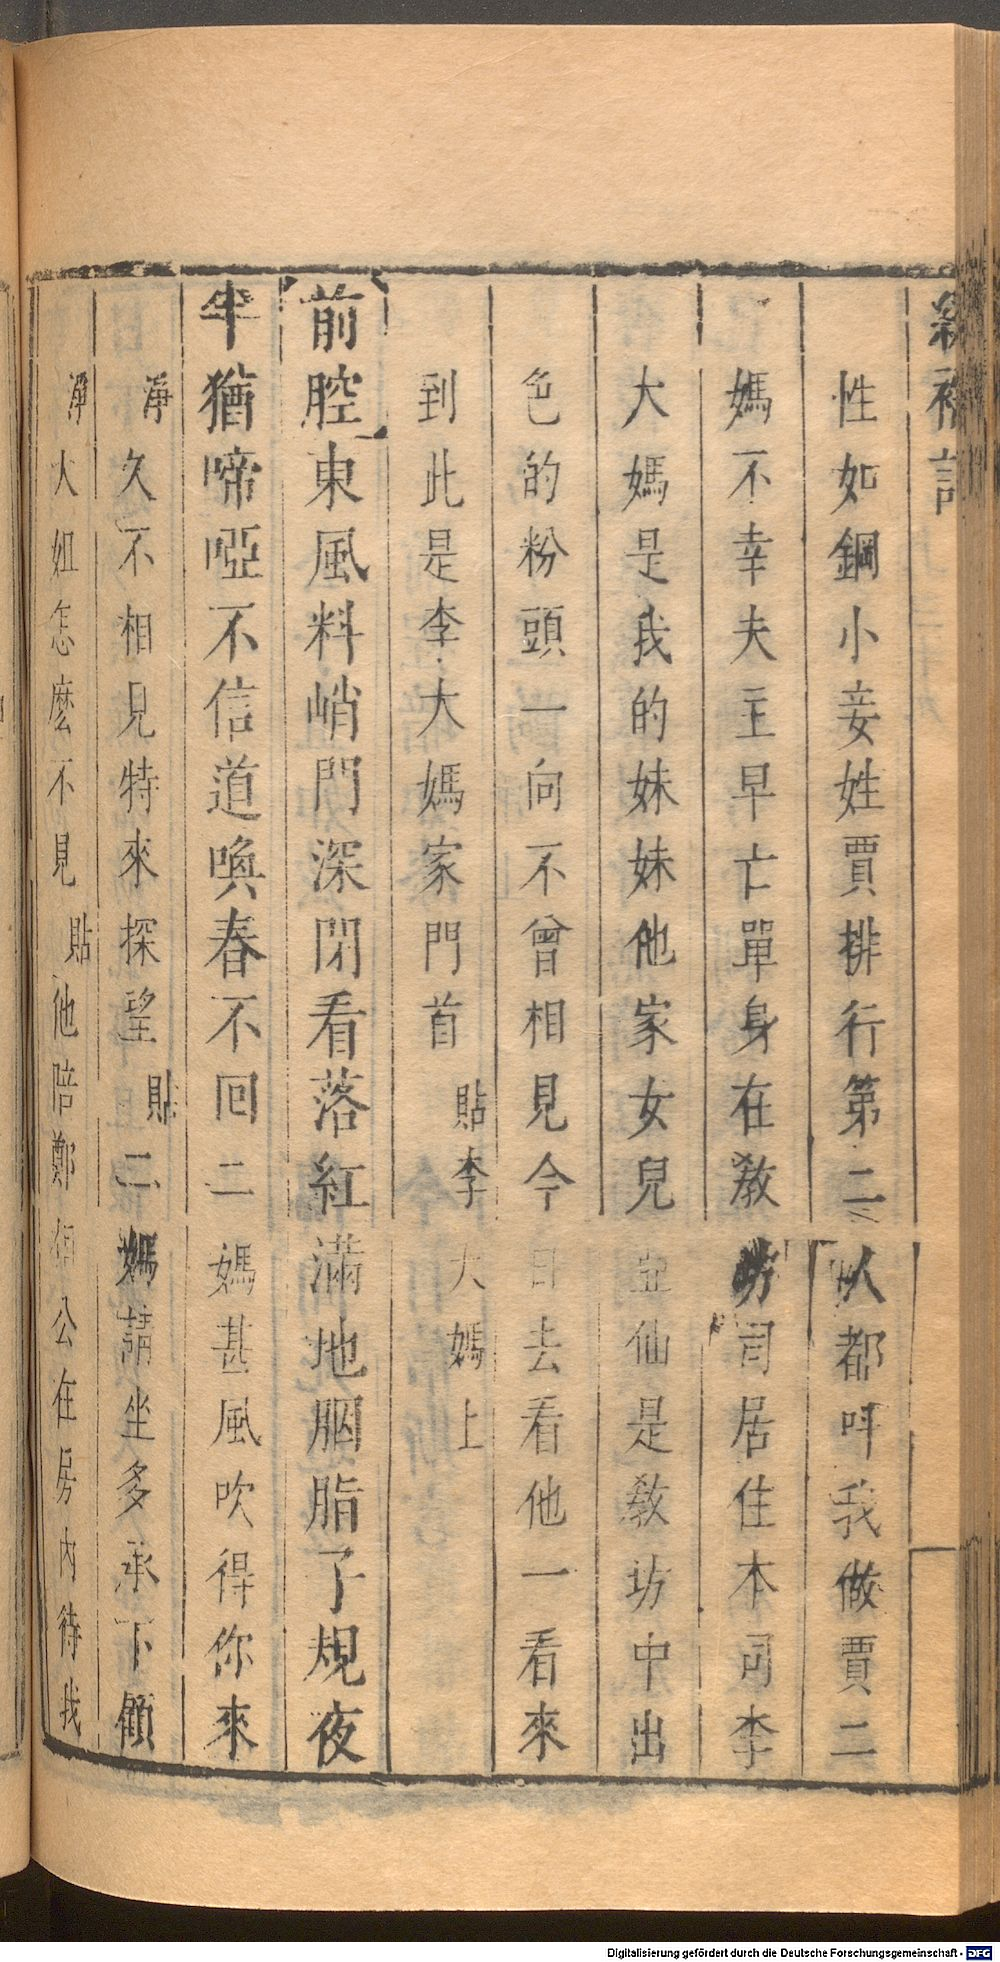 繡襦記
性如鋼小妾姓賈排行第二人都呌我做賈二
媽不幸夫主早亡單身在教坊司居住本司李
大媽是我的妹妹他家女兒亞仙是教坊中出
色的粉頭一向不曾相見今日去看他一看來
到此是李大媽家門首貼李大媽上
前腔東風料峭門深閉看落紅滿地胭脂子規夜
半猶啼啞不信道喚春不回二媽甚風吹得你來
淨久不相見特來探望貼二媽請坐多承下顧
淨大姐怎麽不見貼他陪鄭相公在房內待我
Digitalisierung gefördert durch die Deutsche Forschungsgemeinschaft - DFG